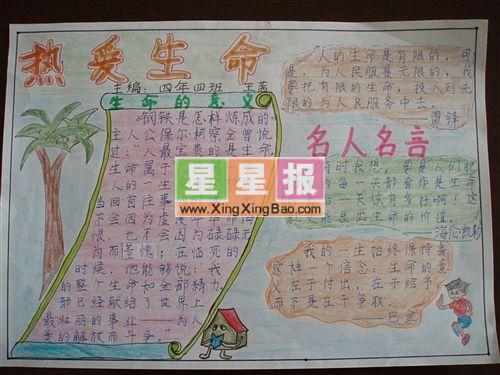 热爱生命
主编：四年四班 王茜
生命的意义
《钢铁是怎样炼成的
主人公保尔·柯察金曾说
过：“人最宝贵的是生命，
生命属于
人的一生
当回首往事
不会因为虚
恨，也不会因为碌碌无
为而羞愧；在临死的
时候，他能够说：我
的整个生命和全部精力，
都已经献给了世界上
最壮丽的事业——为人
类的解放而斗争。”
人的生命是有限的，可
是，为人民服是无限的，我
要把有限的生命，投入到无
限的为人民服务中去。
——雷锋
名人名言
有时我想，要是人们把
的每一天都看作是生命
一天该有多好啊！这
就更能显出生命的价值。
——海伦凯勒
我的一生始终保持着
这样一个信念：生命的意
义在于付出，在于给予
而不是在于争取。
——巴金
星星报
www.XingXingBao.com